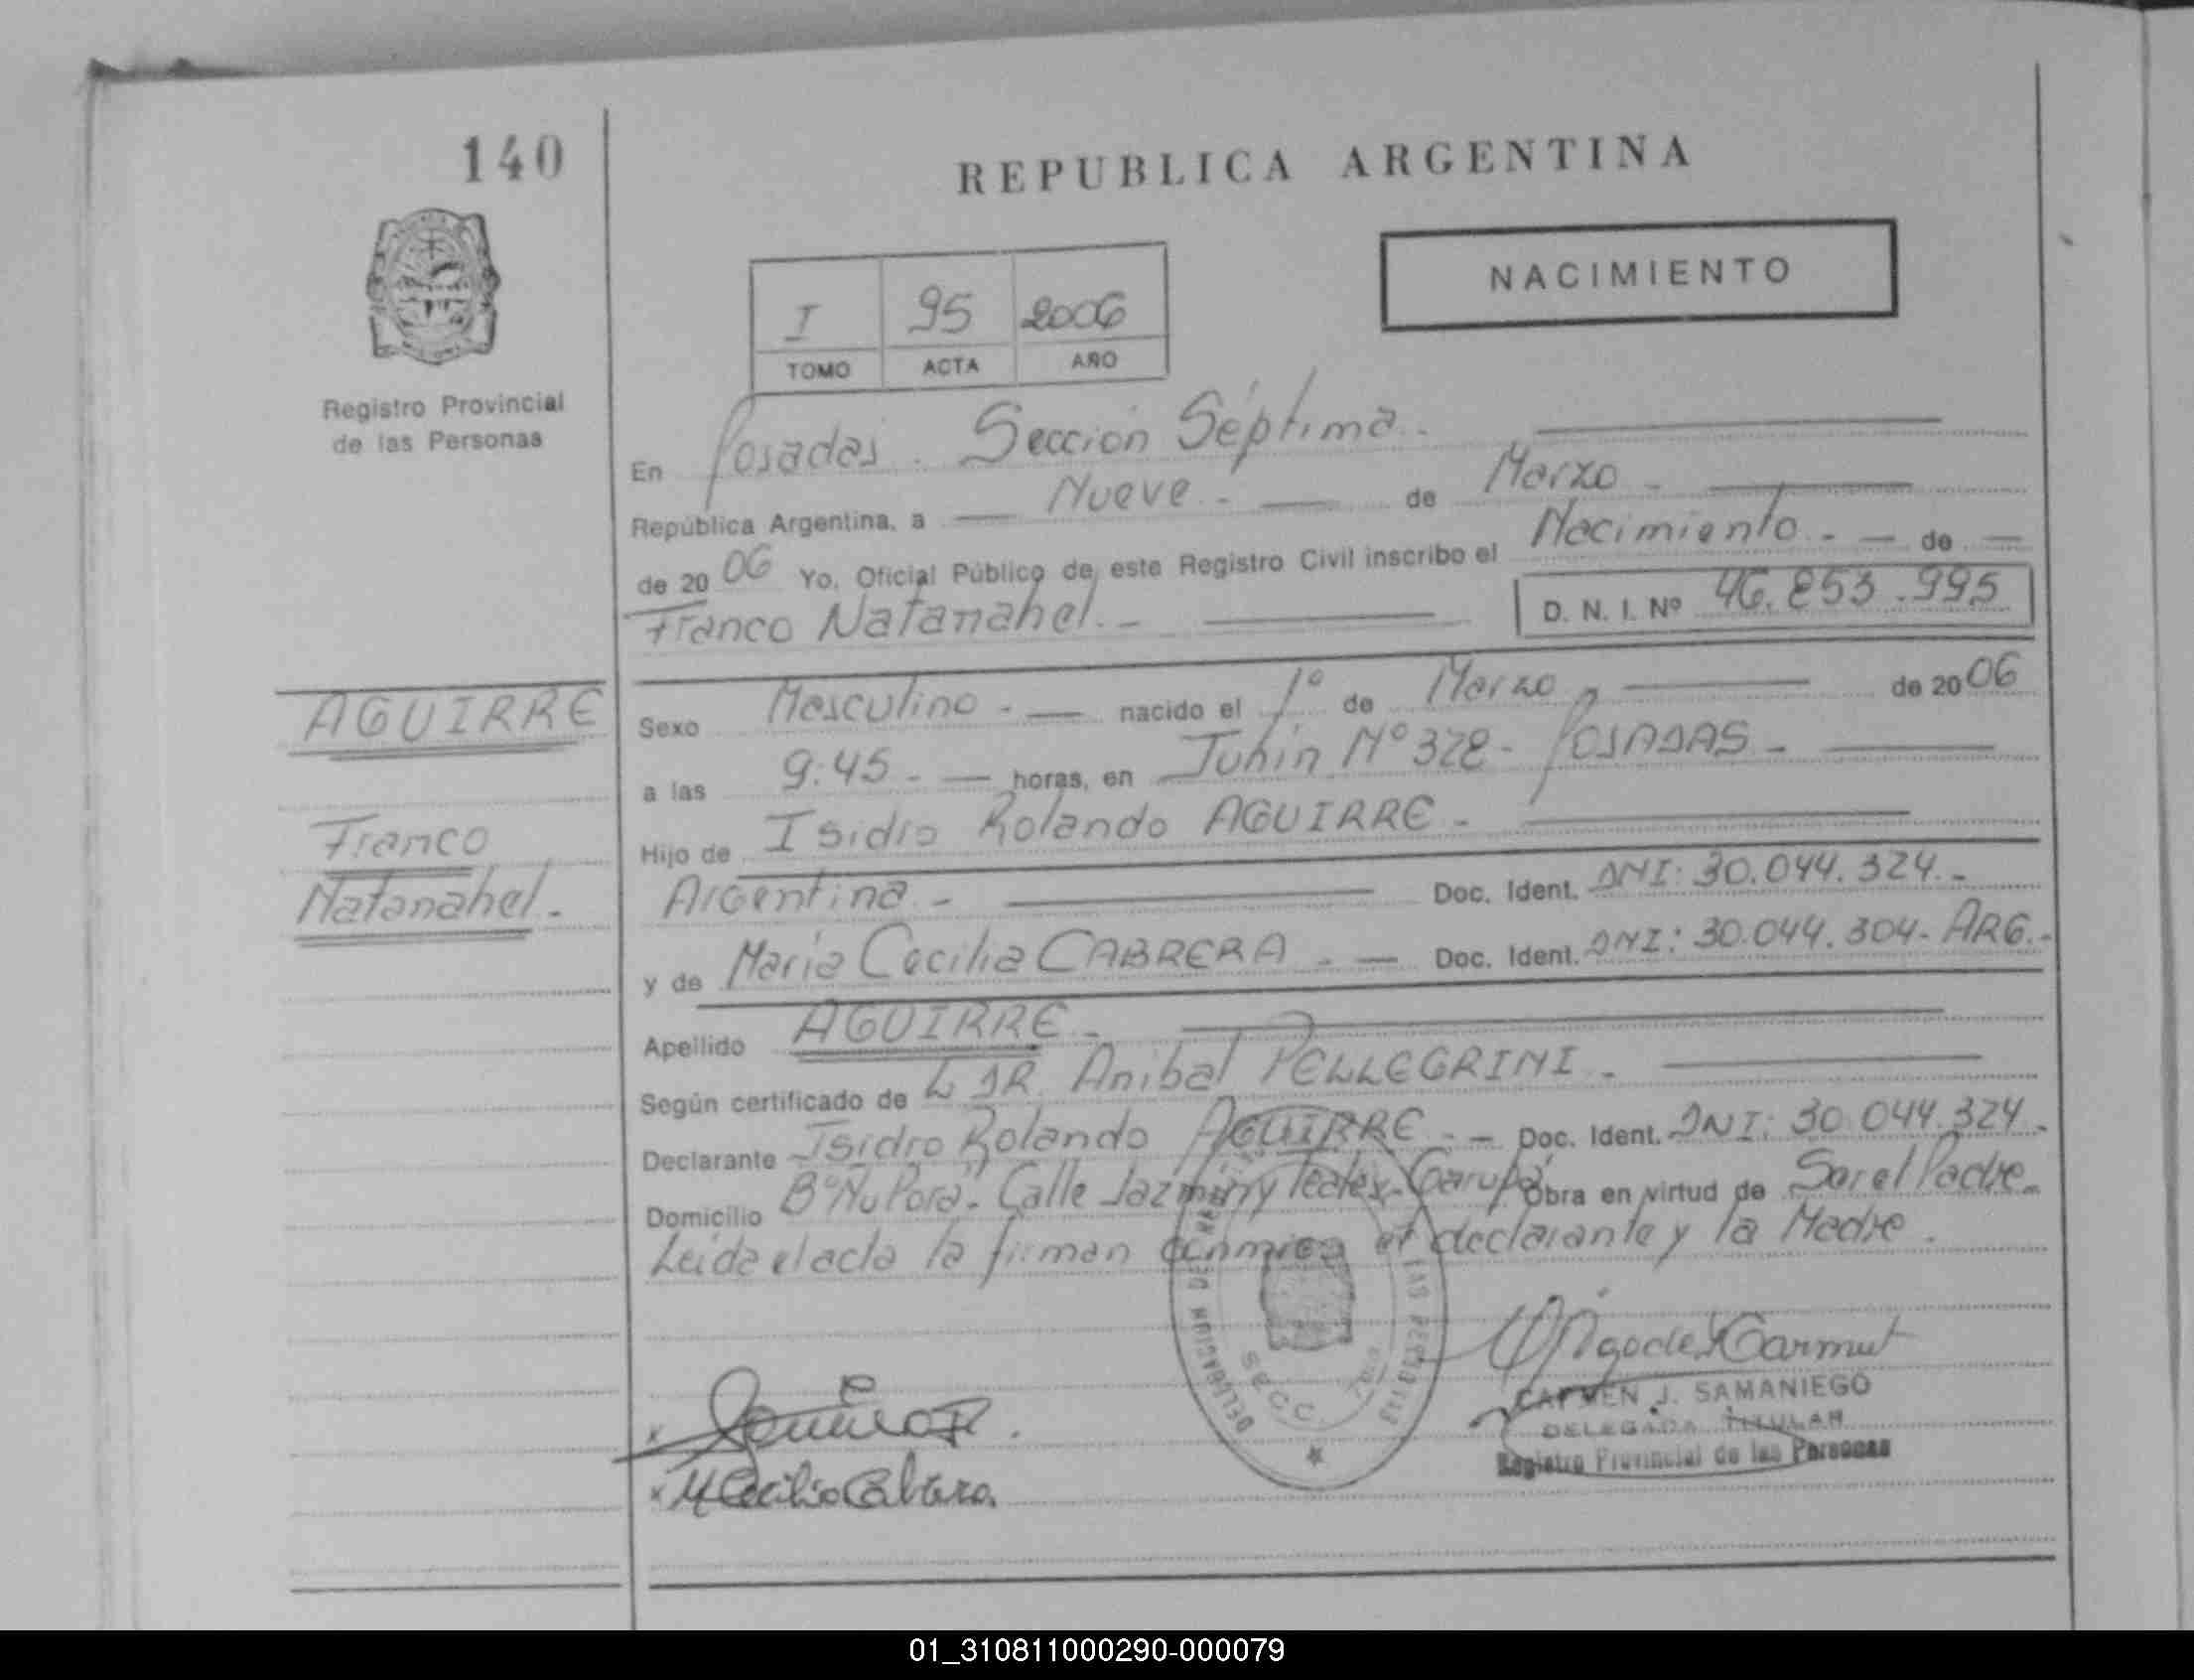 140
REPUBLICA ARGENTINA
NACIMIENTO
I 95 2006
TOMO ACTA AÑO
Registro Provincial
de las Personas
En Posadas. Sección Séptima.
República Argentina, a Nueve.- de Marzo -
de 2006 Yo, Oficial Público de este Registro Civil inscribo el Nacimiento.- de
Franco Natanahel.- D. N. I. Nº 46.853.995
AGUIRRE
Franco
Natanahel.-
Sexo Masculino.- nacido el 1º de Marzo de 2006
a las 9:45.- horas, en Junín Nº 328- POSADAS-
Hijo de Isidro Rolando AGUIRRE-
Argentina.- Doc. Ident. DNI: 30.044.324.-
y de María Cecilia CABRERA.- Doc. Ident. DNI: 30.044.304- ARG.-
Apellido AGUIRRE-
Según certificado de DR. Anibal PELLEGRINI.-
Declarante Isidro Rolando AGUIRRE.- Doc. Ident. DNI: 30.044.324-
Domicilio Bº Ñu Porá - Calle Jazmin y Garupá Obra en virtud de Ser el Padre-
Leída el acta la firman conmigo el declarante y la Madre.
DELEGACION
SECC.
LAS PERSONAS
CARMEN J. SAMANIEGO
DELEGADA TITULAR
Registro Provincial de las Personas
M Cecilia Cabrera
01_310811000290-000079